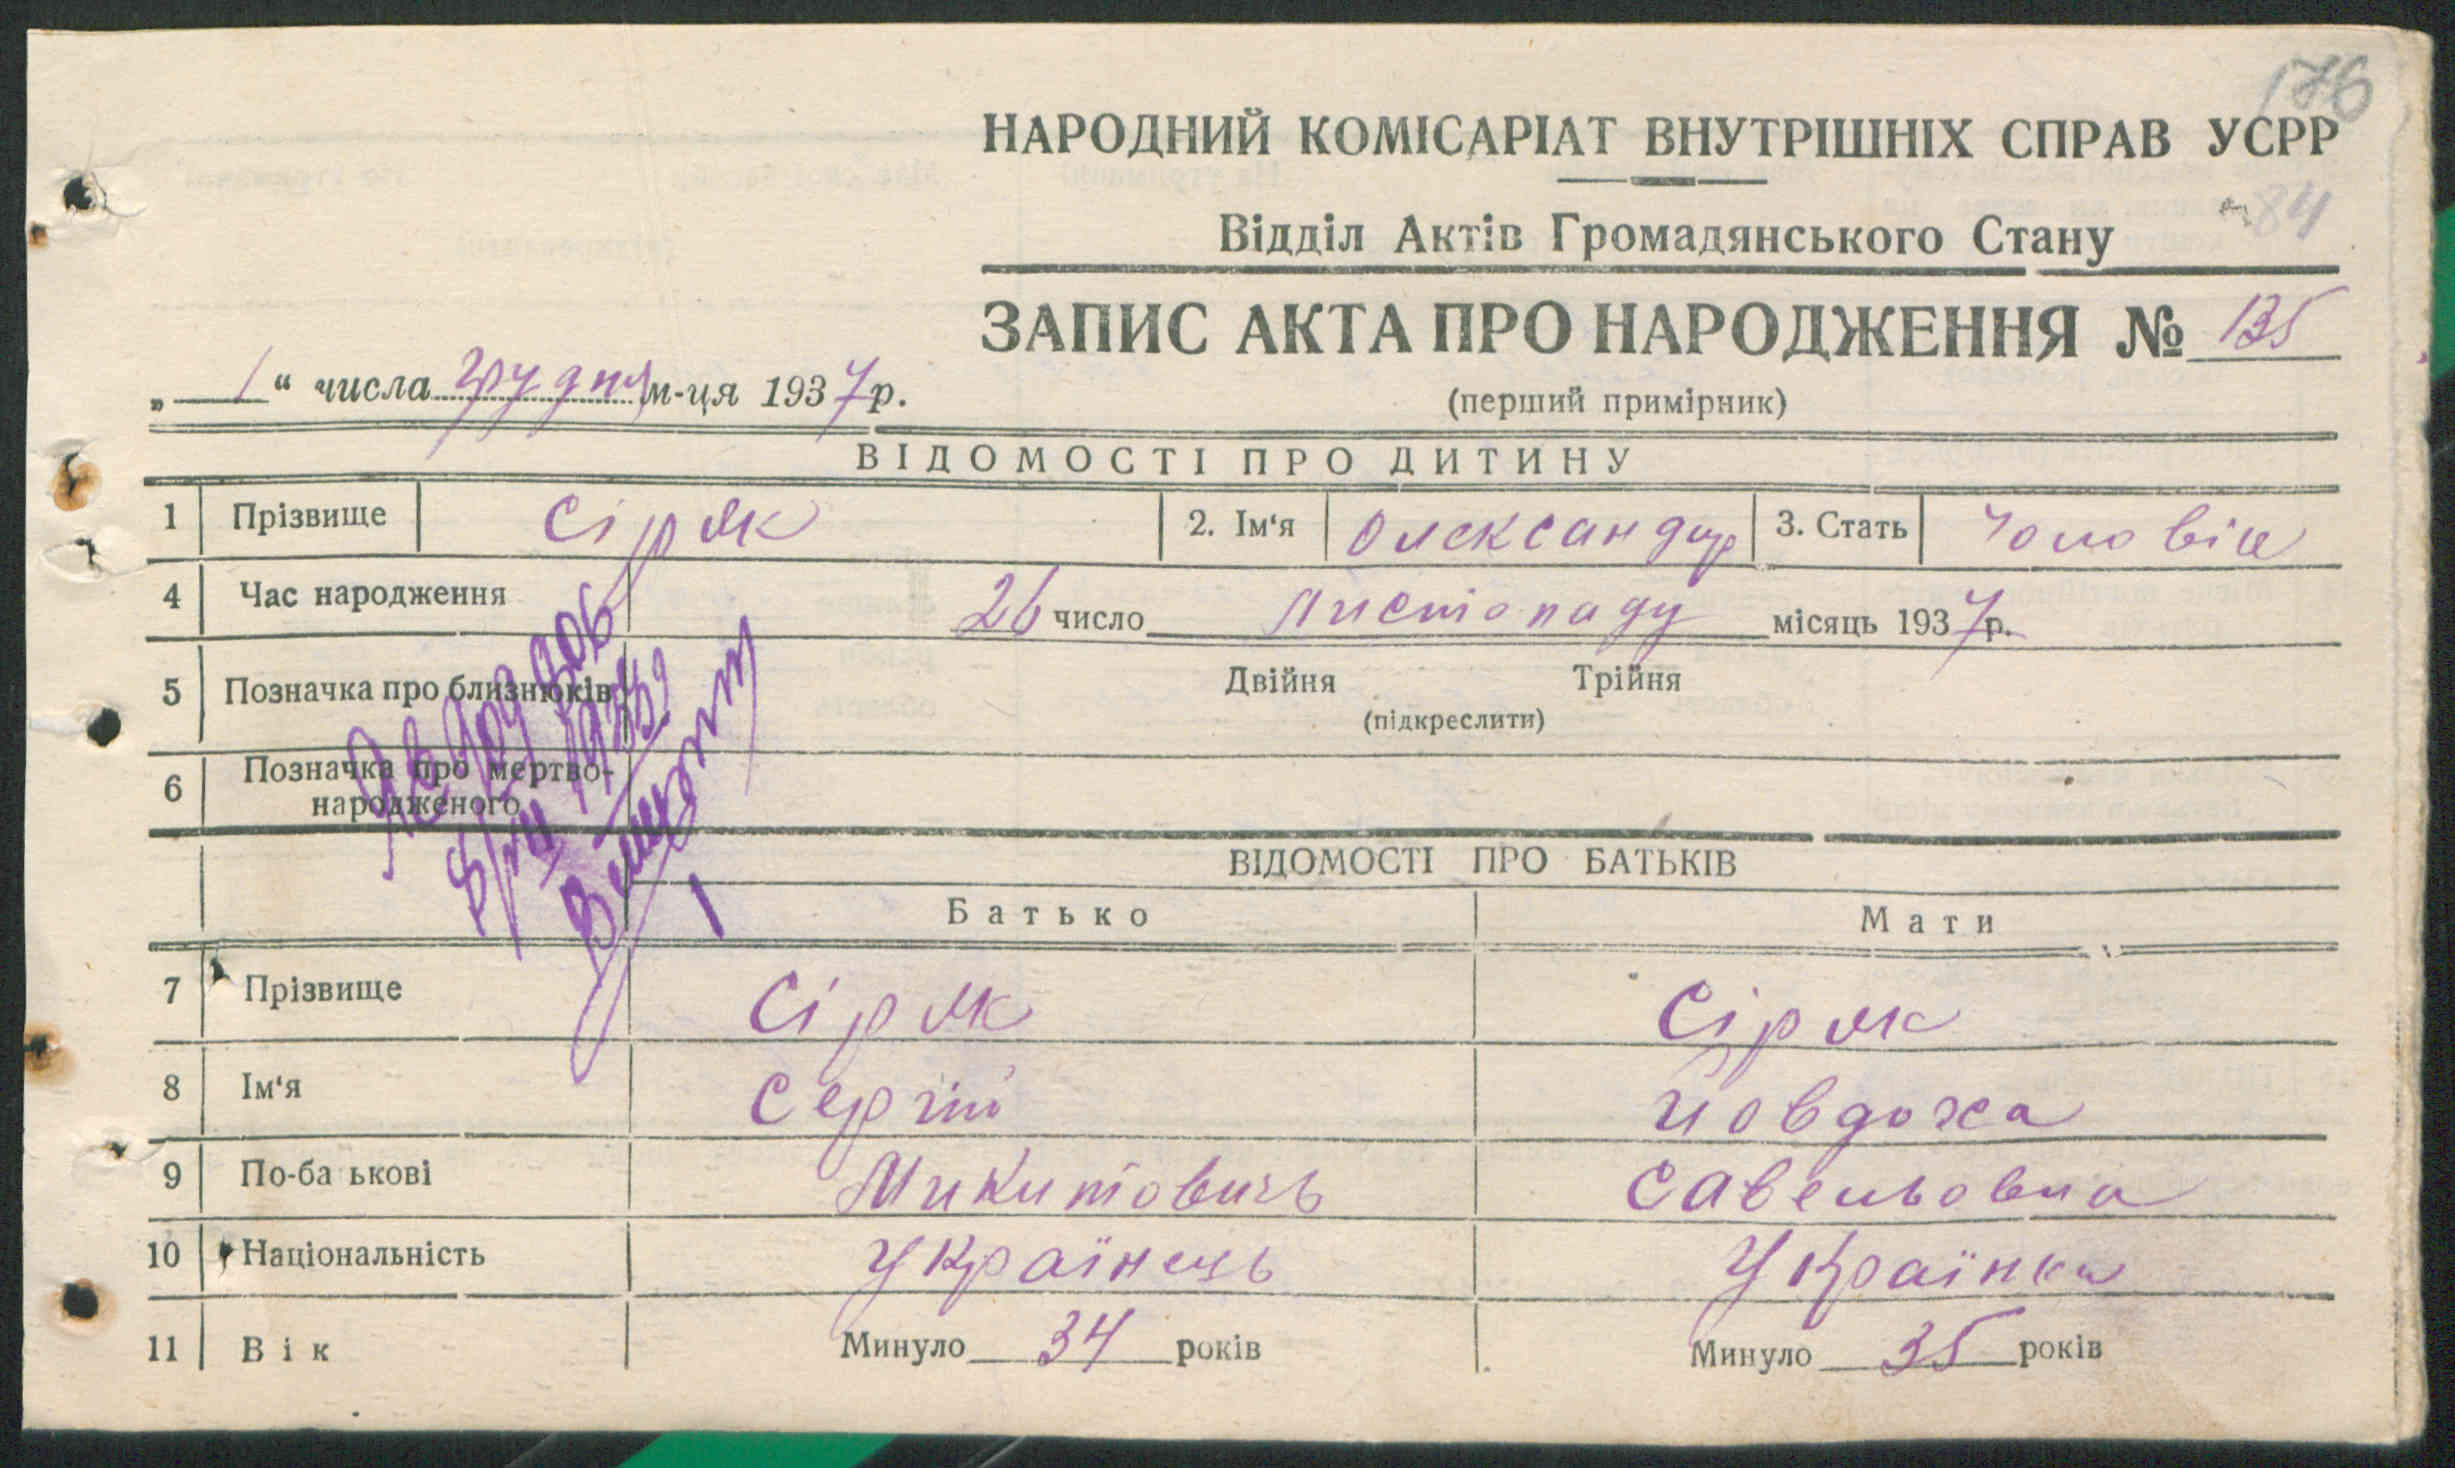 176
НАРОДНИЙ КОМІСАРІАТ ВНУТРІШНІХ СПРАВ УСРР
84
Відділ Актів Громадянського Стану
ЗАПИС АКТА ПРО НАРОДЖЕННЯ № 135
„ 1 “ числа грудня м-ця 1937 р.
(перший примірник)
ВІДОМОСТІ ПРО ДИТИНУ
1 Прізвище Сіряк 2. Ім‘я Олександр 3. Стать Чоловіч
4 Час народження 26 число Листопаду місяць 1937 р.
5 Позначка про близнюків Двійня Трійня
(підкреслити)
6 Позначка про мертво-
народженого
ВІДОМОСТІ ПРО БАТЬКІВ
Батько Мати
7 Прізвище Сіряк Сіряк
8 Ім‘я Сергій Йовдоха
9 По-ба ькові Микитович Савельовна
10 Національність Українець Українка
11 Вік Минуло 34 років Минуло 35 років